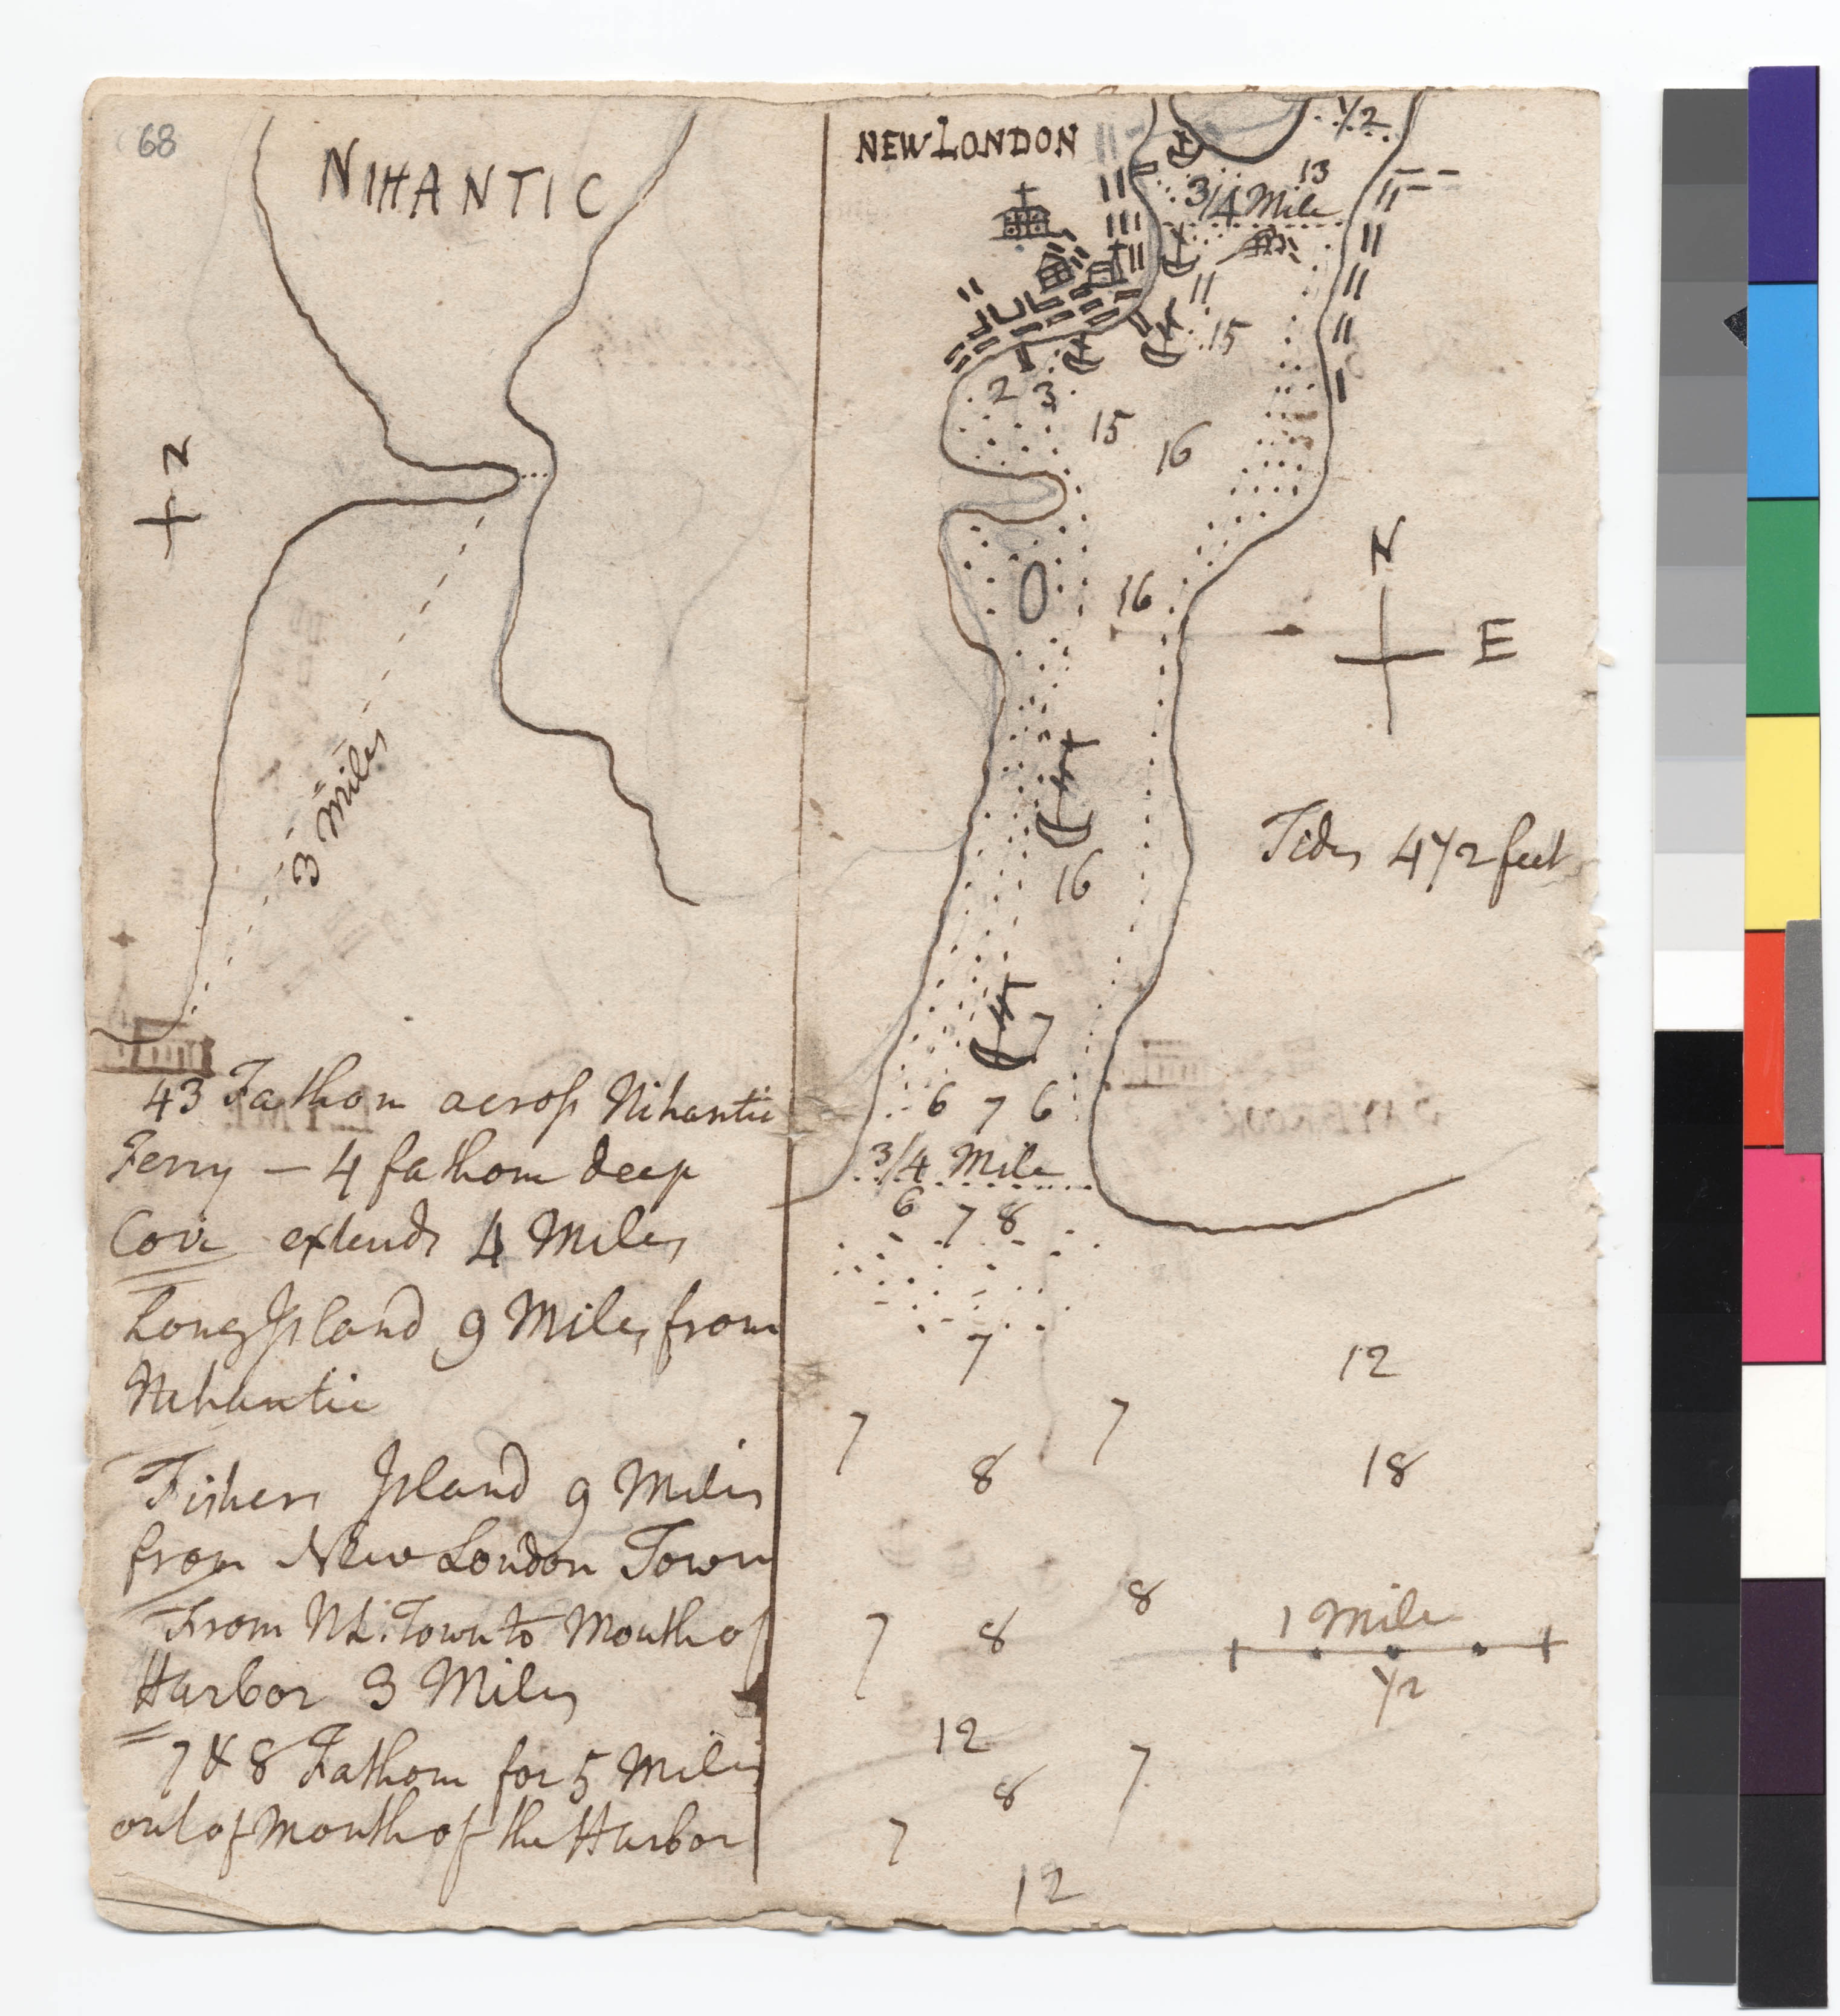 68
NIHANTIC
N
3 miles
43 Fathom across Nihantic
Ferry — 4 fathom deep
Cove extends 4 Miles
Long Island 9 Miles from
Nihantic
Fishers Island 9 Miles
from New London Town
From NL. Town to Mouth of
Harbor 3 Miles
7 & 8 Fathom for 5 Miles
out of Mouth of the Harbor
NEW LONDON
1/2
13
3/4 Mile
11
15
2 3
15
16
16
N
E
Tides 4 1/2 feet
16
7
6 7 6
3/4 Mile
6 7 8
7
12
7 7
8
18
8
7 8
1 Mile
1/2
12
7
8
7
12